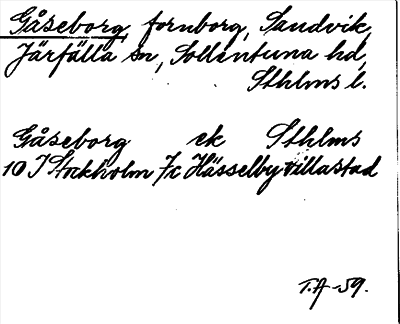 Gåseborg, fornborg, Sandvik,
Järfälla sn, Sollentuna hd,
Sthlms l.
Gåseborg ek Sthlms
10 I Stockholm 7c Hässelby villastad
T.A -59.